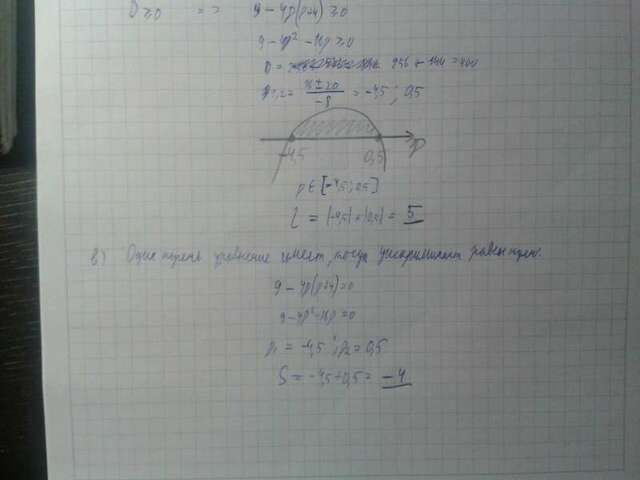 D≥0 => 9 - 4p(p+4) ≥0
9 - 4p² - 16p ≥0
D = 256 + 144 = 400
p₁,₂ = (16±20)/-8 = -4,5 ; 0,5
-4,5 0,5 p
p ∈ [-4,5 ; 0,5]
l = |-4,5| + |0,5| = 5
в) Один корень уравнение имеет, когда дискриминант равен нулю.
9 - 4p(p+4)=0
9 - 4p² - 16p =0
p₁ = -4,5 ; p₂ = 0,5
S = -4,5 + 0,5 = -4